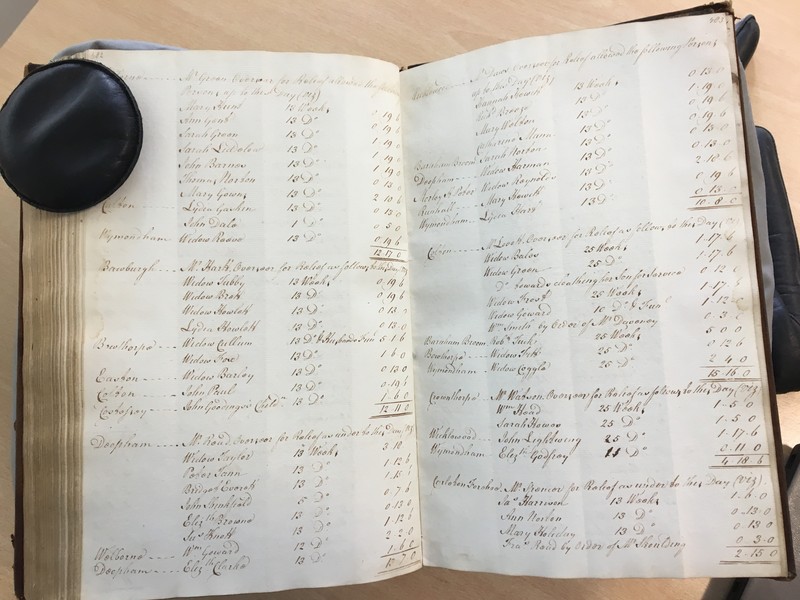 Mr Green Overseer for Relief allowed the following
Persons up to this Day (Viz)
Mary Hunt 13 Weeks 0 19 6
Ann Gent 13 Do 1 19 0
Sarah Green 13 Do 0 19 6
Sarah Liddelow 13 Do 1 19 0
John Barnes 13 Do 1 19 0
Thomas Norton 13 Do
Mary Gown 13 Do 2 10 6
Colton Lydia Gaskin 13 Do 0 13 0
John Dale 1 Do 0 5 0
Wymondham Widow 13 Do 0 19 6
12 17 0
Bawburgh Mr Hart Overseer for Relief as follows to this Day (Viz)
Widow Tubby 13 Weeks 0 19 6
Widow 13 Do 0 19 6
Widow Howlett 13 Do 0 13 0
Lydia Howlett 13 Do 0 13 0
Bowthorpe Widow Cullum 13 Do & Husbands 5 1 6
Widow Fox 13 Do 1 6 0
Easton Widow Barley 13 Do 0 13 0
Colton John Paul 13 Do 0 19 6
Cossessey John Goodings's Child 13 Do 1 6 0
12 11 0
Deopham Mr Raud Overseer for Relief as under to this Day (Viz)
Widow Taylor 13 Weeks
Peter Tann 13 Do 1 12 6
Bridget 13 Do
John 5 Do 0 7 6
Elizth Browne 13 Do 0 13 0
Jas Knott 13 Do 1 12 6
Welborne Wm Goward 12 Do 2 2 0
Deopham Elizth Clarke 13 Do 1 6 0
203
Overseer for Relief allowed the following Persons
up to this Day (Viz)
Hannah Howett 13 Weeks 0 13 0
13 Do 1 19 0
Mary Walton 13 Do 0 19 6
Catharine Mann 13 Do 0 13 0
Barnham Broom Sarah Norton 13 Do 0 13 0
Deopham Widow Harman 13 Do 2 10 6
Widow Reynolds 13 Do 0 19 6
Runhall Mary Howett 13 Do
Wymondham Lydia 13 Do 0 13 0
10 8 0
Colton Mr Overseer for Relief as follows to this Day (Viz)
Widow Bales 25 Weeks 1 17 6
Widow Green 25 Do 1 17 6
Do towards cloathing for Son for Service 0 12 0
Widow Frost 25 Weeks 1 17 6
Widow Goward 10 Do & 1 12 0
Wm Smith by Order of Mr 0 3 0
Barnham Broom Robt 25 Weeks 5 0 0
Bowthorpe Widow 25 Do 0 12 6
Wymondham Widow 25 Do 2 4 0
15 16 0
Crownthorpe Mr Watson Overseer for Relief as follows to this Day (Viz)
Wm Hood 25 Weeks 1 5 0
Sarah Howes 25 Do 1 5 0
Wicklewood John 25 Do 1 17 6
Wymondham Elizth Godfrey 11 Do 0 11 0
4 18 6
Carleton Forehoe Mr Overseer for Relief as under to this Day (Viz)
Jas Harrison 13 Weeks 1 6 0
Ann Norton 13 Do 0 13 0
Mary Holliday 13 Do 0 13 0
Fras Raud by Order of Mr 0 3 0
2 15 0